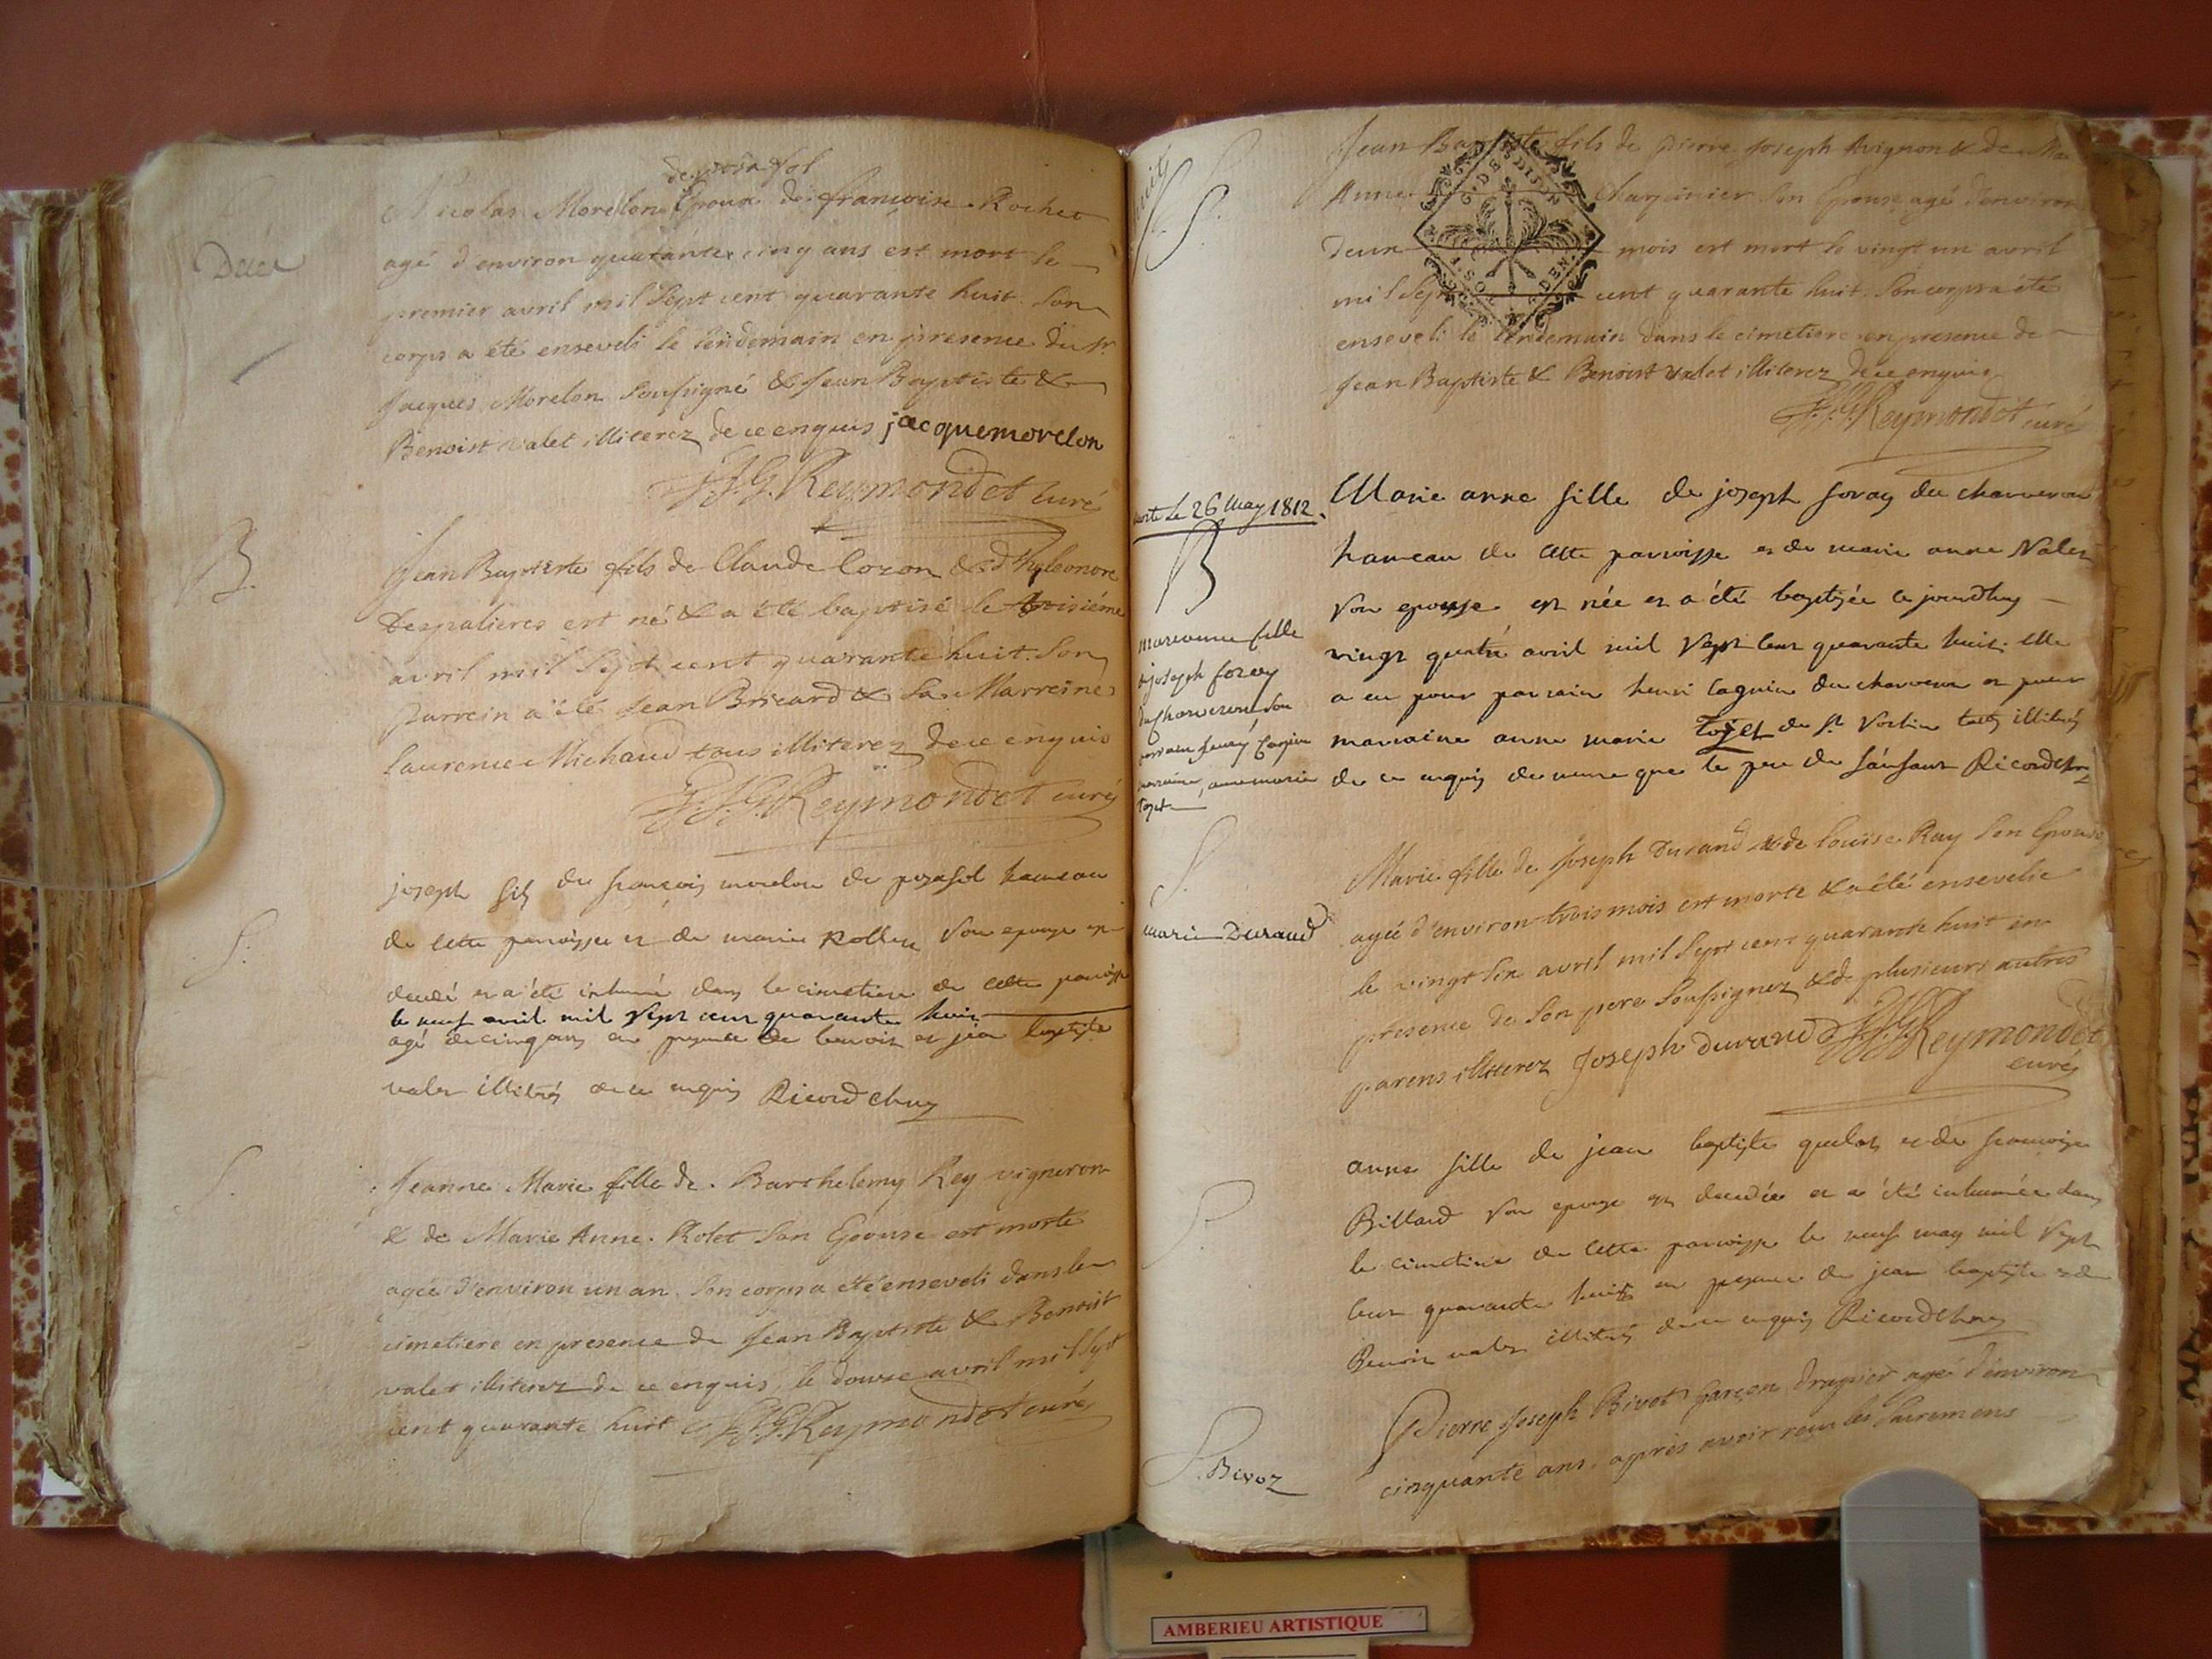 de posafol
Nicolas Morelon Epoux de françoise Rochet
Décé
agé d'environ quarante cinq ans est mort le
premier avril mil sept cent quarante huit. Son
corps a été enseveli le lendemain en presence du Sr.
Jacques Morelon soussigné & Jean Baptiste &
Benoist valet illiterez de ce enquis jacquemorelon
J.G. Reymondet curé
B.
Jean Baptiste fils de Claude Cozon &
Despalieres est né & a été baptisé le troisiéme
avril mil Sept cent quarante huit. Son
Parrein a été Jean Bricard & Sa Marreine
Laurence Michaud tous illiterez de ce enquis
J.G. Reymondet curé
joseph fils de françois morelon de posafol hameau
S.
de cette parroisse et de marie Rollet son epouse est
decedé et a été inhumé dans le cimetiere de cette parroisse
le neuf avril mil sept cent quarante huit
agé de cinq ans en presence de benoit et jean baptiste
valet illitérés de ce enquis Ricord
S.
Jeanne Marie fille de Barthelemy Rey vigneron
& de Marie Anne Rolet Son Epouse est morte
agée d'environ un an. Son corps a été enseveli dans le
cimetiere en presence de Jean Baptiste & Benoist
valet illiterez de ce enquis, le douze avril mil Sept
cent quarante huit J.G. Reymondet curé
S.
Jean Baptiste fils de pierre Joseph Avignon & de Ma
Anne Charpinier Son Epouse agé d'environ
Deux mois est mort le vingt un avril
mil Sept cent quarante huit. Son corps a été
enseveli le lendemain dans le cimetiere en presence de
Jean Baptiste & Benoist valet illiterez de ce enquis
G. DE DIJON
J.G. Reymondet curé
morte Le 26 May 1812.
B
Marie anne fille de joseph foray du charveron
hameau de cette parroisse et de marie anne Valet
son epouse est née et a été baptisée ce jourdhuy
vingt quatre avril mil sept cent quarante huit. elle
a eu pour parrain henri du et pour
marraine anne marie toset de St. tous illitérés
de ce enquis de meme que le pere de l'enfant Ricord
marianne fille
de joseph foray
du son
parrain
marraine, anne marie
toset
S.
marie Durand
Marie fille de Joseph Durand & de Louise Ray Son Epouse
agée d'environ trois mois est morte & a été ensevelie
le vingt Six avril mil Sept cent quarante huit en
presence de Son pere Soussignez & de plusieurs autres
parens illiterez Joseph durand J.G. Reymondet
curé
S.
anne fille de jean baptiste quelot et de françoise
Billard son epouse est decedée et a été inhumée dans
le cimetiere de cette parroisse le neuf may mil sept
cent quarante huit en presence de jean baptiste et de
Benoit valet illitérés de ce enquis Ricord
S. Bivoz
Pierre Joseph Bivot garçon drapier agé d'environ
cinquante ans après avoir reçu les Sacremens
AMBERIEU ARTISTIQUE